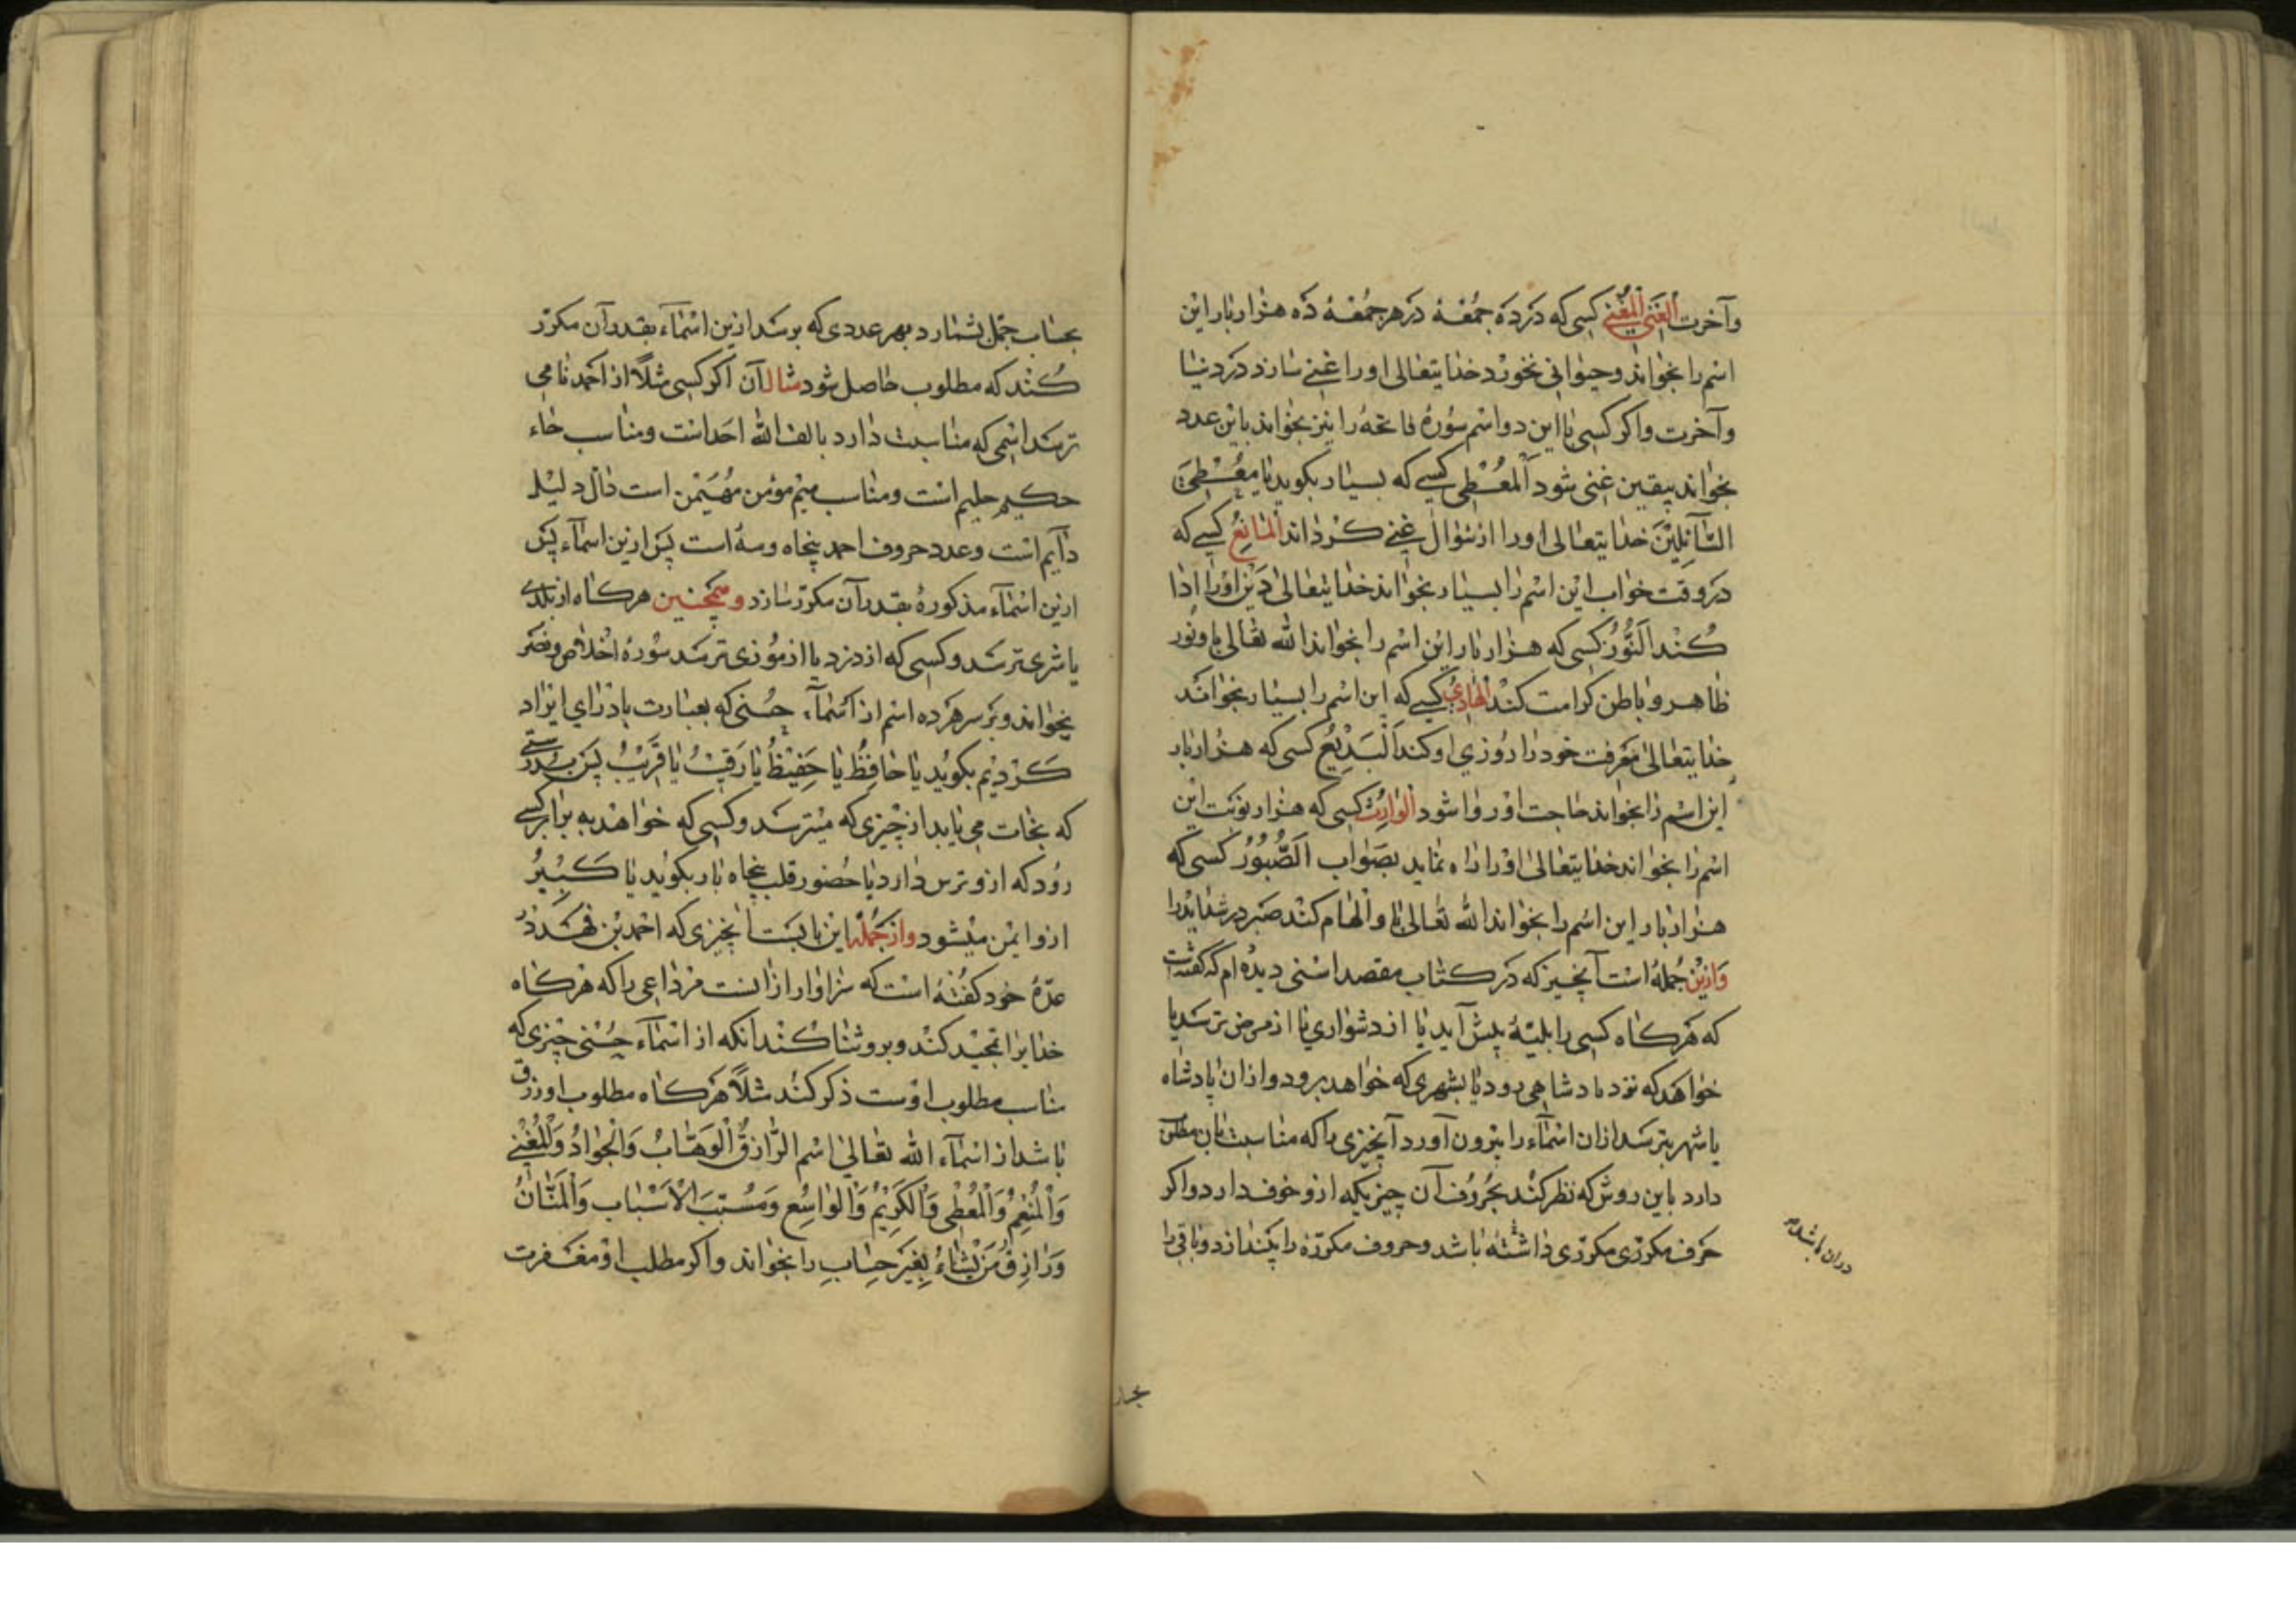 وآخرت الغنی المغنی کسی که در ده جمعهٔ در هر جمعهٔ ده هزار بار این
اسم را بخواند وحیوانی نخورد خدایتعالی اورا غنی سازد در دنیا
وآخرت واکر کسی با این دو اسم سورهٔ فاتحه را نیز بخواند باین عدد
بخواند بیقین غنی شود المعطی کسی که بسیار بکوید یا معطی
السائلین خدایتعالی اورا از سؤال غنی کرداند المانع کسی که
در وقت خواب این اسم را بسیار بخواند خدایتعالی دین اورا ادا
کند النور کسی که هزار بار این اسم را بخواند الله تعالی باو نور
ظاهر و باطن کرامت کند الهادی کسی که این اسم را بسیار بخواند
خدایتعالی معرفت خود را روزی او کند البدیع کسی که هزار بار
این اسم را بخواند حاجت او روا شود الوارث کسی که هزار نوبت این
اسم را بخواند خدایتعالی اورا راه نماید بصواب الصبور کسی که
هزار بار این اسم را بخواند الله تعالی باو الهام کند صبر در شداید را
وازین جمله است آنچیز که در کتاب مقصد اسنی دیده ام که کفته است
که هرکاه کسی را بلیهٔ پیش آید یا از دشواری یا از مرض ترسد یا
خواهد که نزد پادشاهی رود یا بشهری که خواهد برود واز ان پادشاه
یا شهر بترسد از ان اسمآء را بیرون آورد آنچیزی را که مناسبت بان مطلب
دارد باین روش که نظر کند بحروف آن چیزیکه ازو خوف دارد واکر
حرف مکرری مکرری داشته باشد وحروف مکرره را بیندازد وباقی را
دران باشد
بحساب
بحساب جمل بشمارد بهر عددی که برسد ازین اسمآء بقدر آن مکرر
کند که مطلوب حاصل شود مثال آن اکر کسی مثلاً از احمد نامی
ترسد اسمی که مناسبت دارد بالف الله احد است ومناسب حاء
حکیم حلیم است ومناسب میم مؤمن مهیمن است دال دلیل
دآیم است وعدد حروف احمد پنجاه وسه است پس ازین اسمآء پس
ازین اسمآء مذکوره بقدر آن مکرر سازد وهمچنین هرکاه از بلدی
یا شری ترسد وکسی که از دزد یا از موذی ترسد سورهٔ اخلاص وحشر
بخواند وبر سر هر ده اسم از اسمآء حسنی که بعبارت یاد رای ایراد
کردیم بکوید یا حافظ یا حفیظ یا رقیب یا قریب پس بدرستی
که نجات می یابد از چیزی که میترسد وکسی که خواهد به برابر کسی
رود که ازو ترس دارد با حضور قلب پنجاه بار بکوید یا کبیر
ازو ایمن میشود واز جملهٔ این بابست آنچیزی که احمد بن فهد در
عدهٔ خود کفته است که سزاوار ازانست مر داعی را که هرکاه
خدایرا تمجید کند وبرو ثنا کند انکه از اسمآء حسنی چیزی که
مناسب مطلوب اوست ذکر کند مثلاً هرکاه مطلوب او رزق
باشد از اسمآء الله تعالی اسم الرازق الوهاب والجواد والمغنی
والمنعم والمعطی والکریم والواسع ومسبب الاسباب والمنان
ورازق من یشاء بغیر حساب را بخواند واکر مطلب او مغفرت